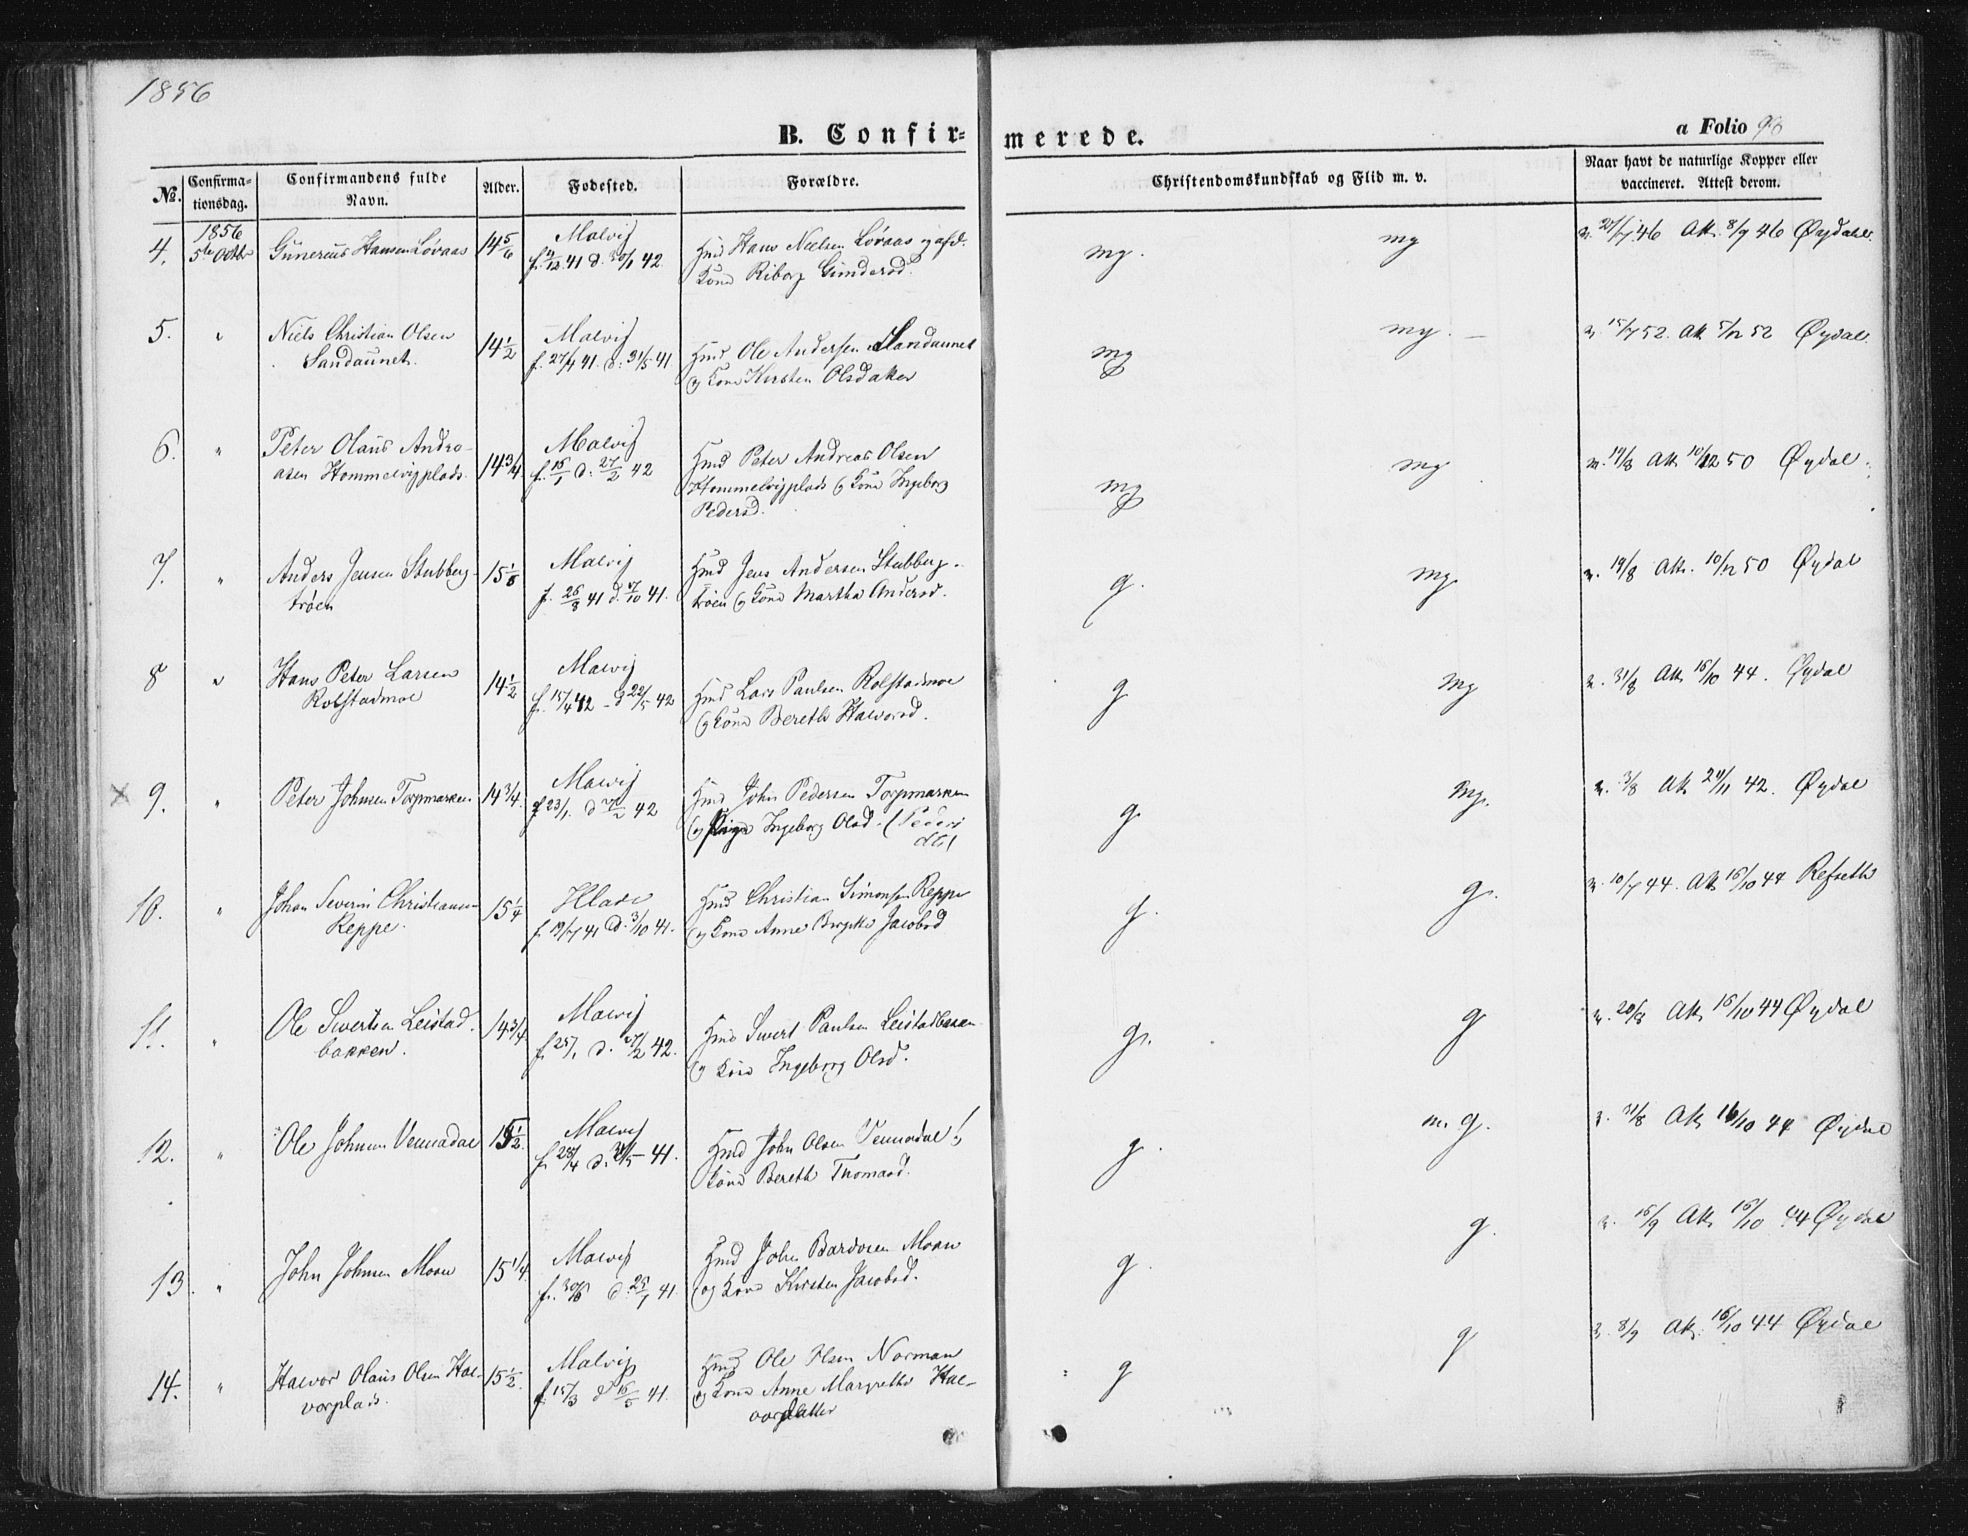 1856
B. Confir- merede.
a Folio 96
№. Confirma-tionsdag. Confirmandens fulde Navn. Alder. Fødested. Forældre. Christendomskundskab og Flid m. v. Naar havt de naturlige Kopper eller vaccineret. Attest derom.
4. 1856 5te Octbr Gunerius Hansen Løvaas 14 5/6 Malvig
f. 41 d. 30/1 42. Hmd Hans Nielsen Løvaas og afd. Kone Riborg Gundersd. mg. mg 46 Att. 8/9 46 Øydal
5. " Niels Christian Olsen
Sandaunet. 14 1/2 Malvig
f. 27/4 41. d. 31/5 41 Hmd Ole Andersen Sandaunet
og Kone Kirsten Olsdatter mg mg. v. 15/7 52. Att 5/12 52 Øydal
6. " Peter Olaus Andre-
asen Hommelvigplads. 14 3/4 Malvig
f. 15/1 d. 27/2 42 Hmd Peter Andreas Olsen
Hommelvigplads og Kone Ingeborg
Pedersd. mg mg v. 19/8 Att. 10/12 50 Øydal
7. " Anders Jensen Stubberg-
trøen 15 1/8 Malvig
f. 26/8 41 d. 17/10 41. Hmd Jens Andersen Stubberg-
trøen og Kone Martha Andersd. g. mg. v. 19/8 Att. 10/12 50 Øydal
8 " Hans Peter Larsen
Rolstadmoe 14 1/2 Malvig
f. 15/4 42 - d 22/5 42 Hmd Lars Paulsen Rolstadmoe
og Kone Bereth Halvorsd. g mg v. 31/8 Att. 16/10 44. Øydal
x 9. " Peter Johnsen Torpmarken 14 3/4. Malvig
f 23/1. d 27/2 42 Hmd John Pedersen Torpmarken
og Pige Ingeborg Olsd. g. mg. v. 3/8 Att 24/11 42. Øydal
10. " Johan Severin Christiansen
Reppe. 15 1/4 Hlade
f. 19/7 41 d. 3/10 41. Hmd Christian Simonsen Reppe
og Kone Anne Birgitte Jacobsd g. g. v. 10/7 44. Att 16/10 44 Refseth
11. " Ole Sivertsen Leistad-
bakken. 14 3/4 Malvig
f. 25/1 d. 27/2 42. Hmd Sivert Paulsen Leistadbaken
og Kone Ingeborg Olsd. g. g v. 20/8 Att. 16/10 44 Øydal
12. " Ole Johnsen Vennadal 15 1/2. Malvig
f. 28/4 d. 31/5 - 41. Hmd John Olsen Vennadal og
Kone Bereth Thomasd. g. m. g. v. 31/8 Att 16/10 44 Øydal
13. " John Johnsen Moan 15 1/4. Malvig
f. 30/6 d. 25/7 41. Hmd John Bardosen Moan
og Kone Kirsten Jacobsd. g. g. v. 16/9 Att 16/10 44 Øydal
14. " Halvor Olaus Olsen Hal-
vorplads. 15 1/2. Malvig
f. 15/3 d 16/5 41. Hmd Ole Olsen Norman
og Kone Anne Margrethe Hal-
vorsdatter g g v. 8/9 Att. 16/10 44 Øydal